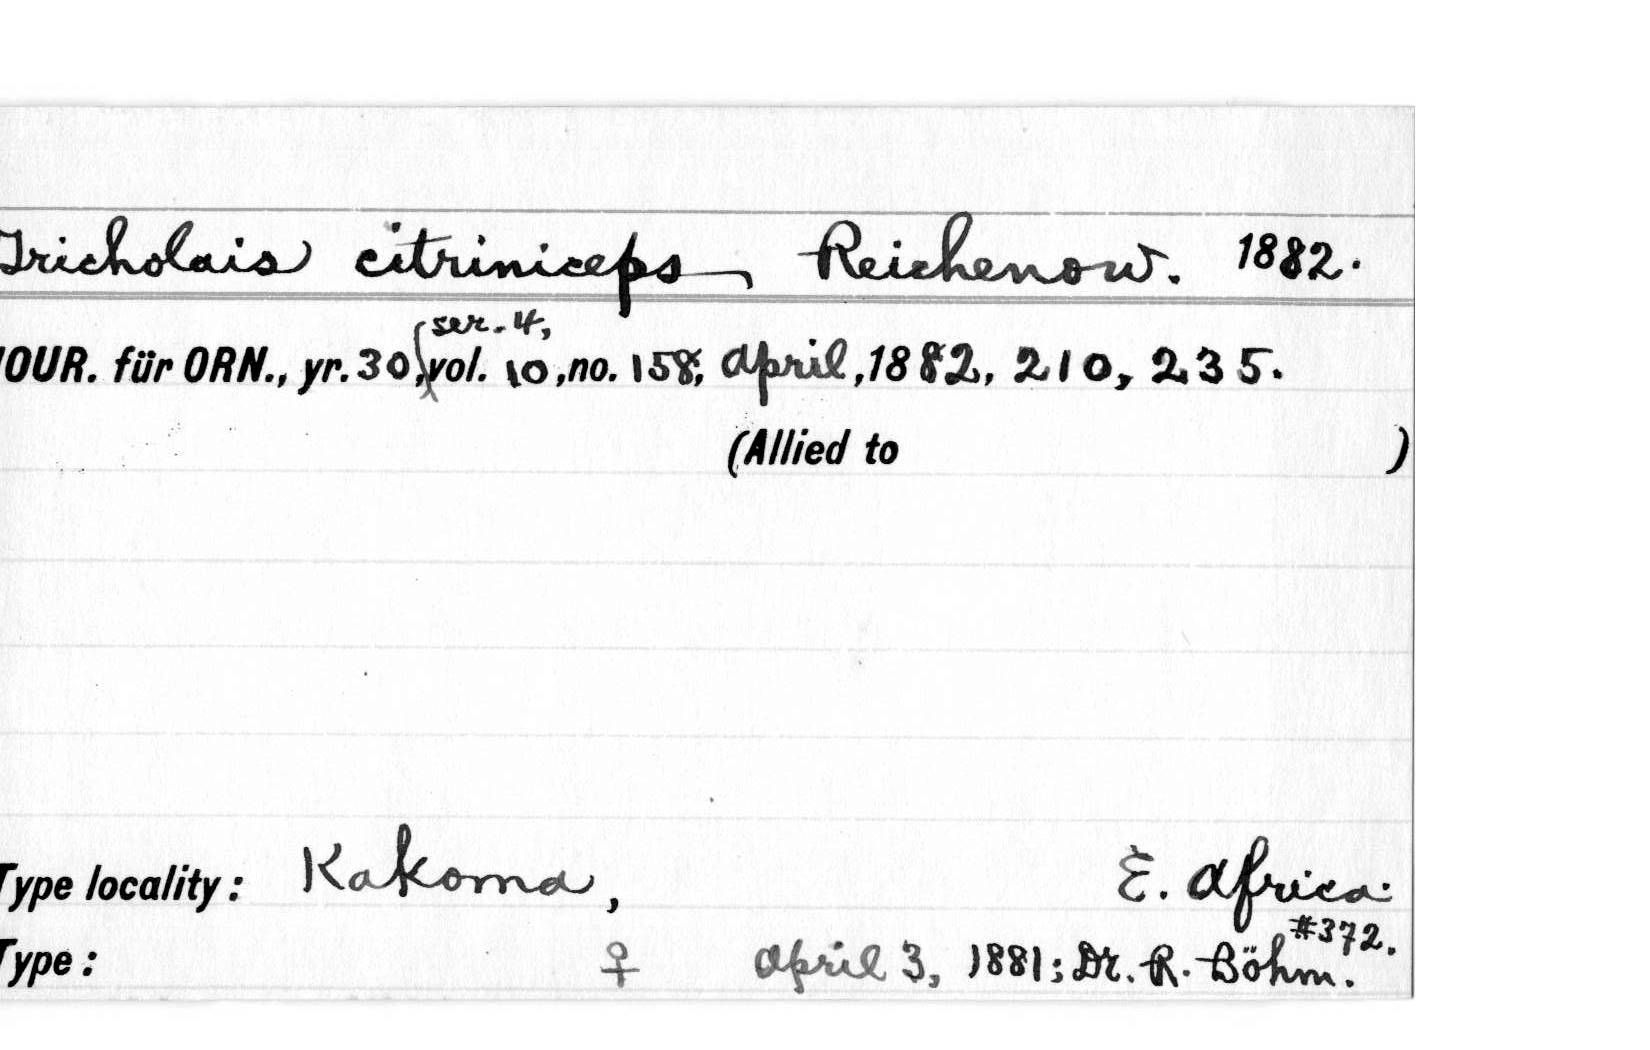 Tricholais citriniceps, Reichenow. 1882.
ser. 4,
JOUR. für ORN., yr. 30, vol. 10, no. 158, April, 1882, 210, 235.
(Allied to )
Type locality: Kakoma, E. Africa.
#372.
Type: ♀ April 3, 1881; Dr. R. Böhm.